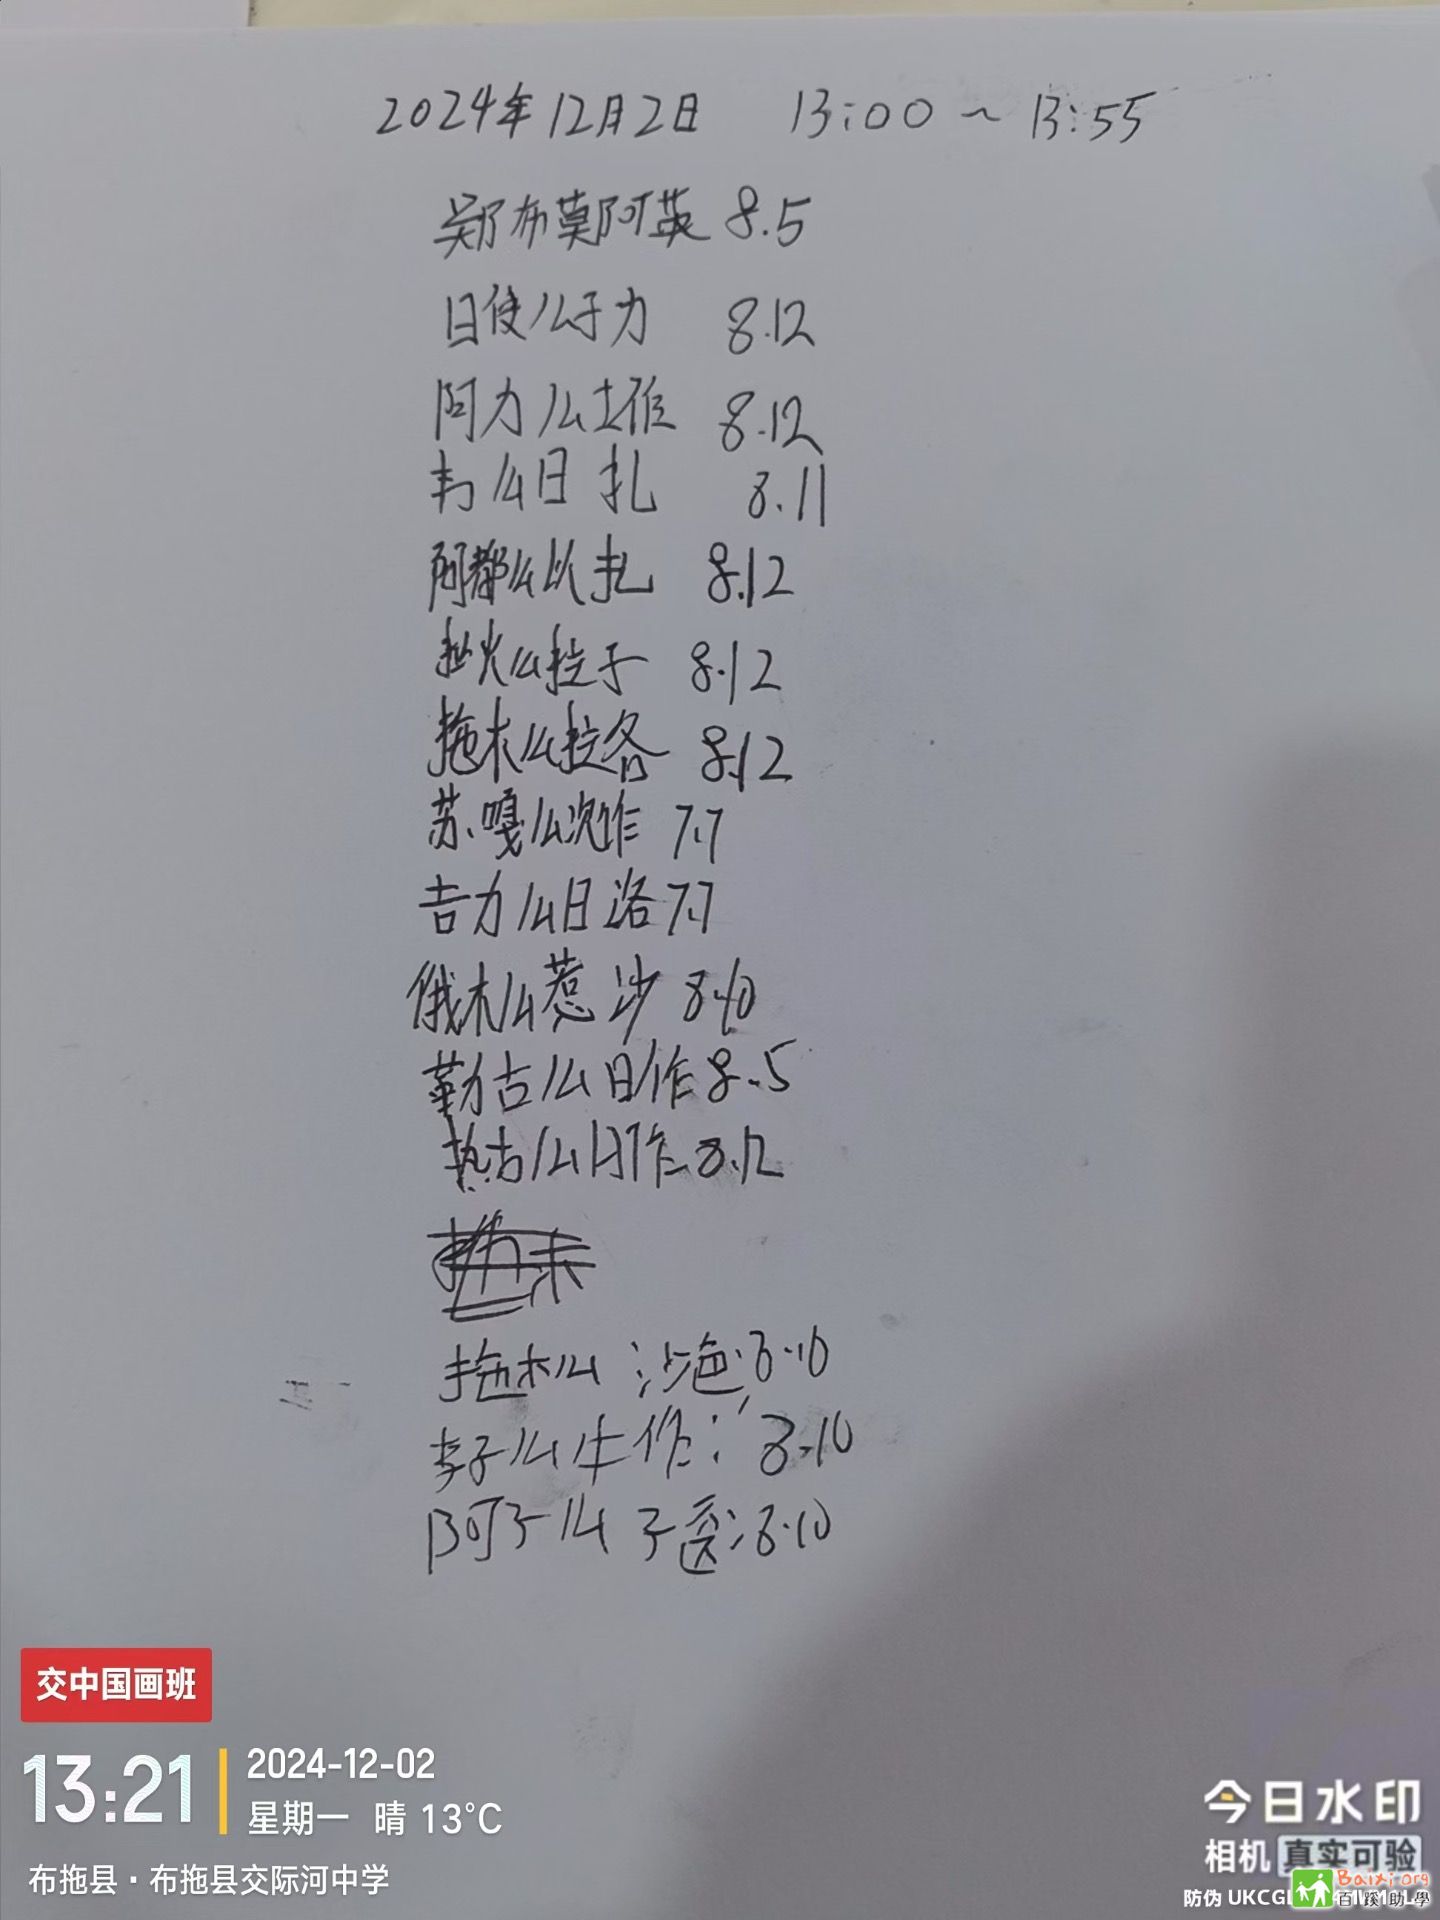 2024年12月2日 13:00～13:55
郑布莫阿英 8.5
日使么子力 8.12
阿力么 8.12
么日扎 8.11
阿都么以扎 8.12
火么拉子 8.12
拖木么拉各 8.12
苏嘎么次作 7.7
吉力么日洛 7.7
俄木么惹沙 8.10
勒古么日作 8.5
热古么日作 8.12
拖木么 沙色:8.10
李子么牛作: 8.10
阿子么子 :8.10
交中国画班
13:21
2024-12-02
星期一 晴 13°C
布拖县·布拖县交际河中学
今日水印
相机 真实可验
防伪
Baixi.org
百蹊助學